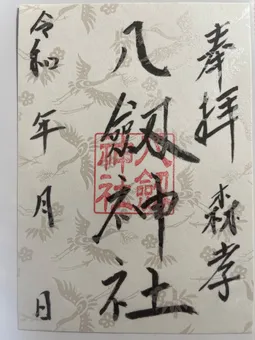 奉拝 森孝
八劔神社
八剣神社
令和 年 月 日